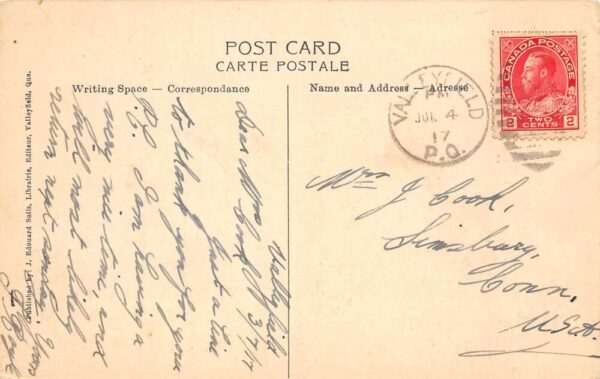 POST CARD
CARTE POSTALE
Writing Space — Correspondence
Name and Address — Adresse
Published by: J. Edouard Solis, Librairie, Editeur, Valleyfield, Que.
Valleyfield
3/7/17
Dear Mrs Cook,
Just a line
to thank you for your
P.C. I am having a
very nice time, and
will most likely
return next Sunday.
Yours
VALLEYFIELD
PM
JUL 4
17
P.Q.
CANADA POSTAGE
2 TWO CENTS 2
Mrs J Cook,
Simsbury,
Conn,
U.S.A.